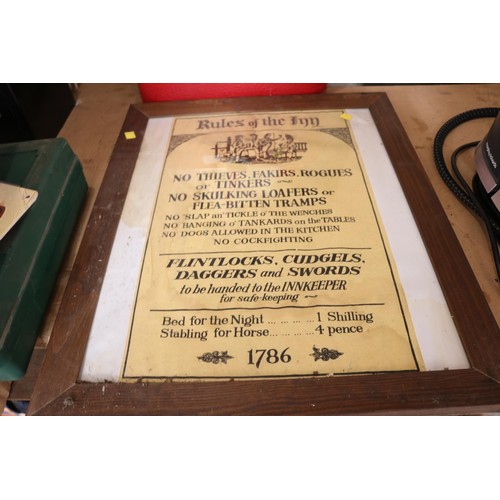 Rules of the Inn
NO THIEVES, FAKIRS, ROGUES
or TINKERS
NO SKULKING LOAFERS or
FLEA-BITTEN TRAMPS
NO 'SLAP an' TICKLE O' THE WENCHES
NO BANGING O' TANKARDS on the TABLES
NO DOGS ALLOWED IN THE KITCHEN
NO COCKFIGHTING
FLINTLOCKS, CUDGELS,
DAGGERS and SWORDS
to be handed to the INNKEEPER
for safe-keeping
Bed for the Night ... ... ... ... 1 Shilling
Stabling for Horse ... ... ... 4 pence
1786